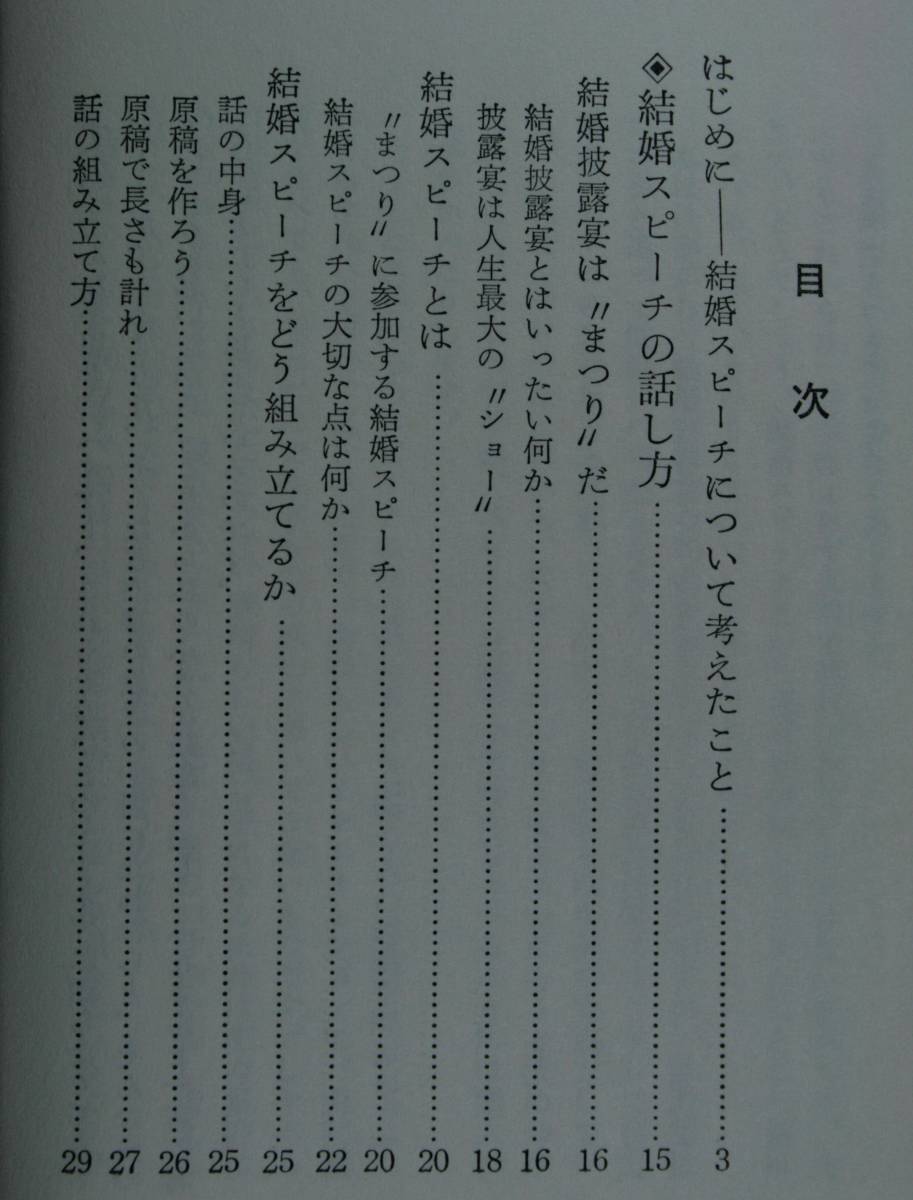 目次
はじめに――結婚スピーチについて考えたこと……………………3
◈結婚スピーチの話し方……………………15
結婚披露宴は〝まつり〟だ……………………16
結婚披露宴とはいったい何か……………………16
披露宴は人生最大の〝ショー〟……………………18
結婚スピーチとは……………………20
〝まつり〟に参加する結婚スピーチ……………………20
結婚スピーチの大切な点は何か……………………22
結婚スピーチをどう組み立てるか……………………25
話の中身……………………25
原稿を作ろう……………………26
原稿で長さも計れ……………………27
話の組み立て方……………………29